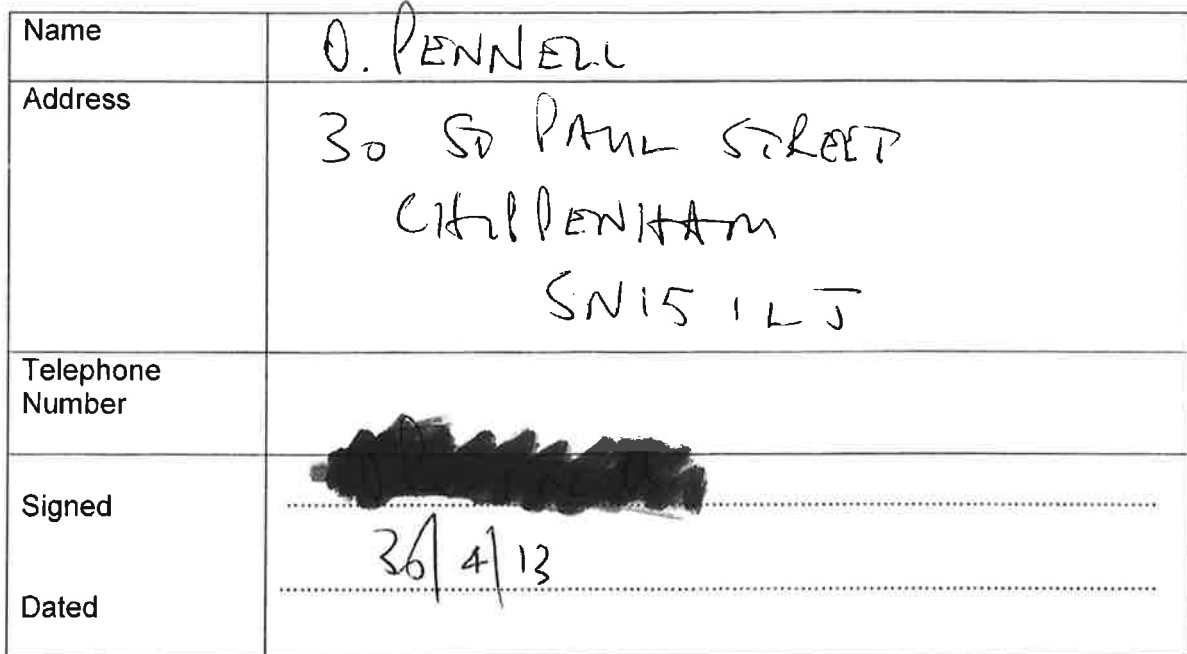 Name
O. PENNELL
Address
30 ST PAUL STREET
CHIPPENHAM
SN15 1LJ
Telephone
Number
Signed
30/4/13
Dated